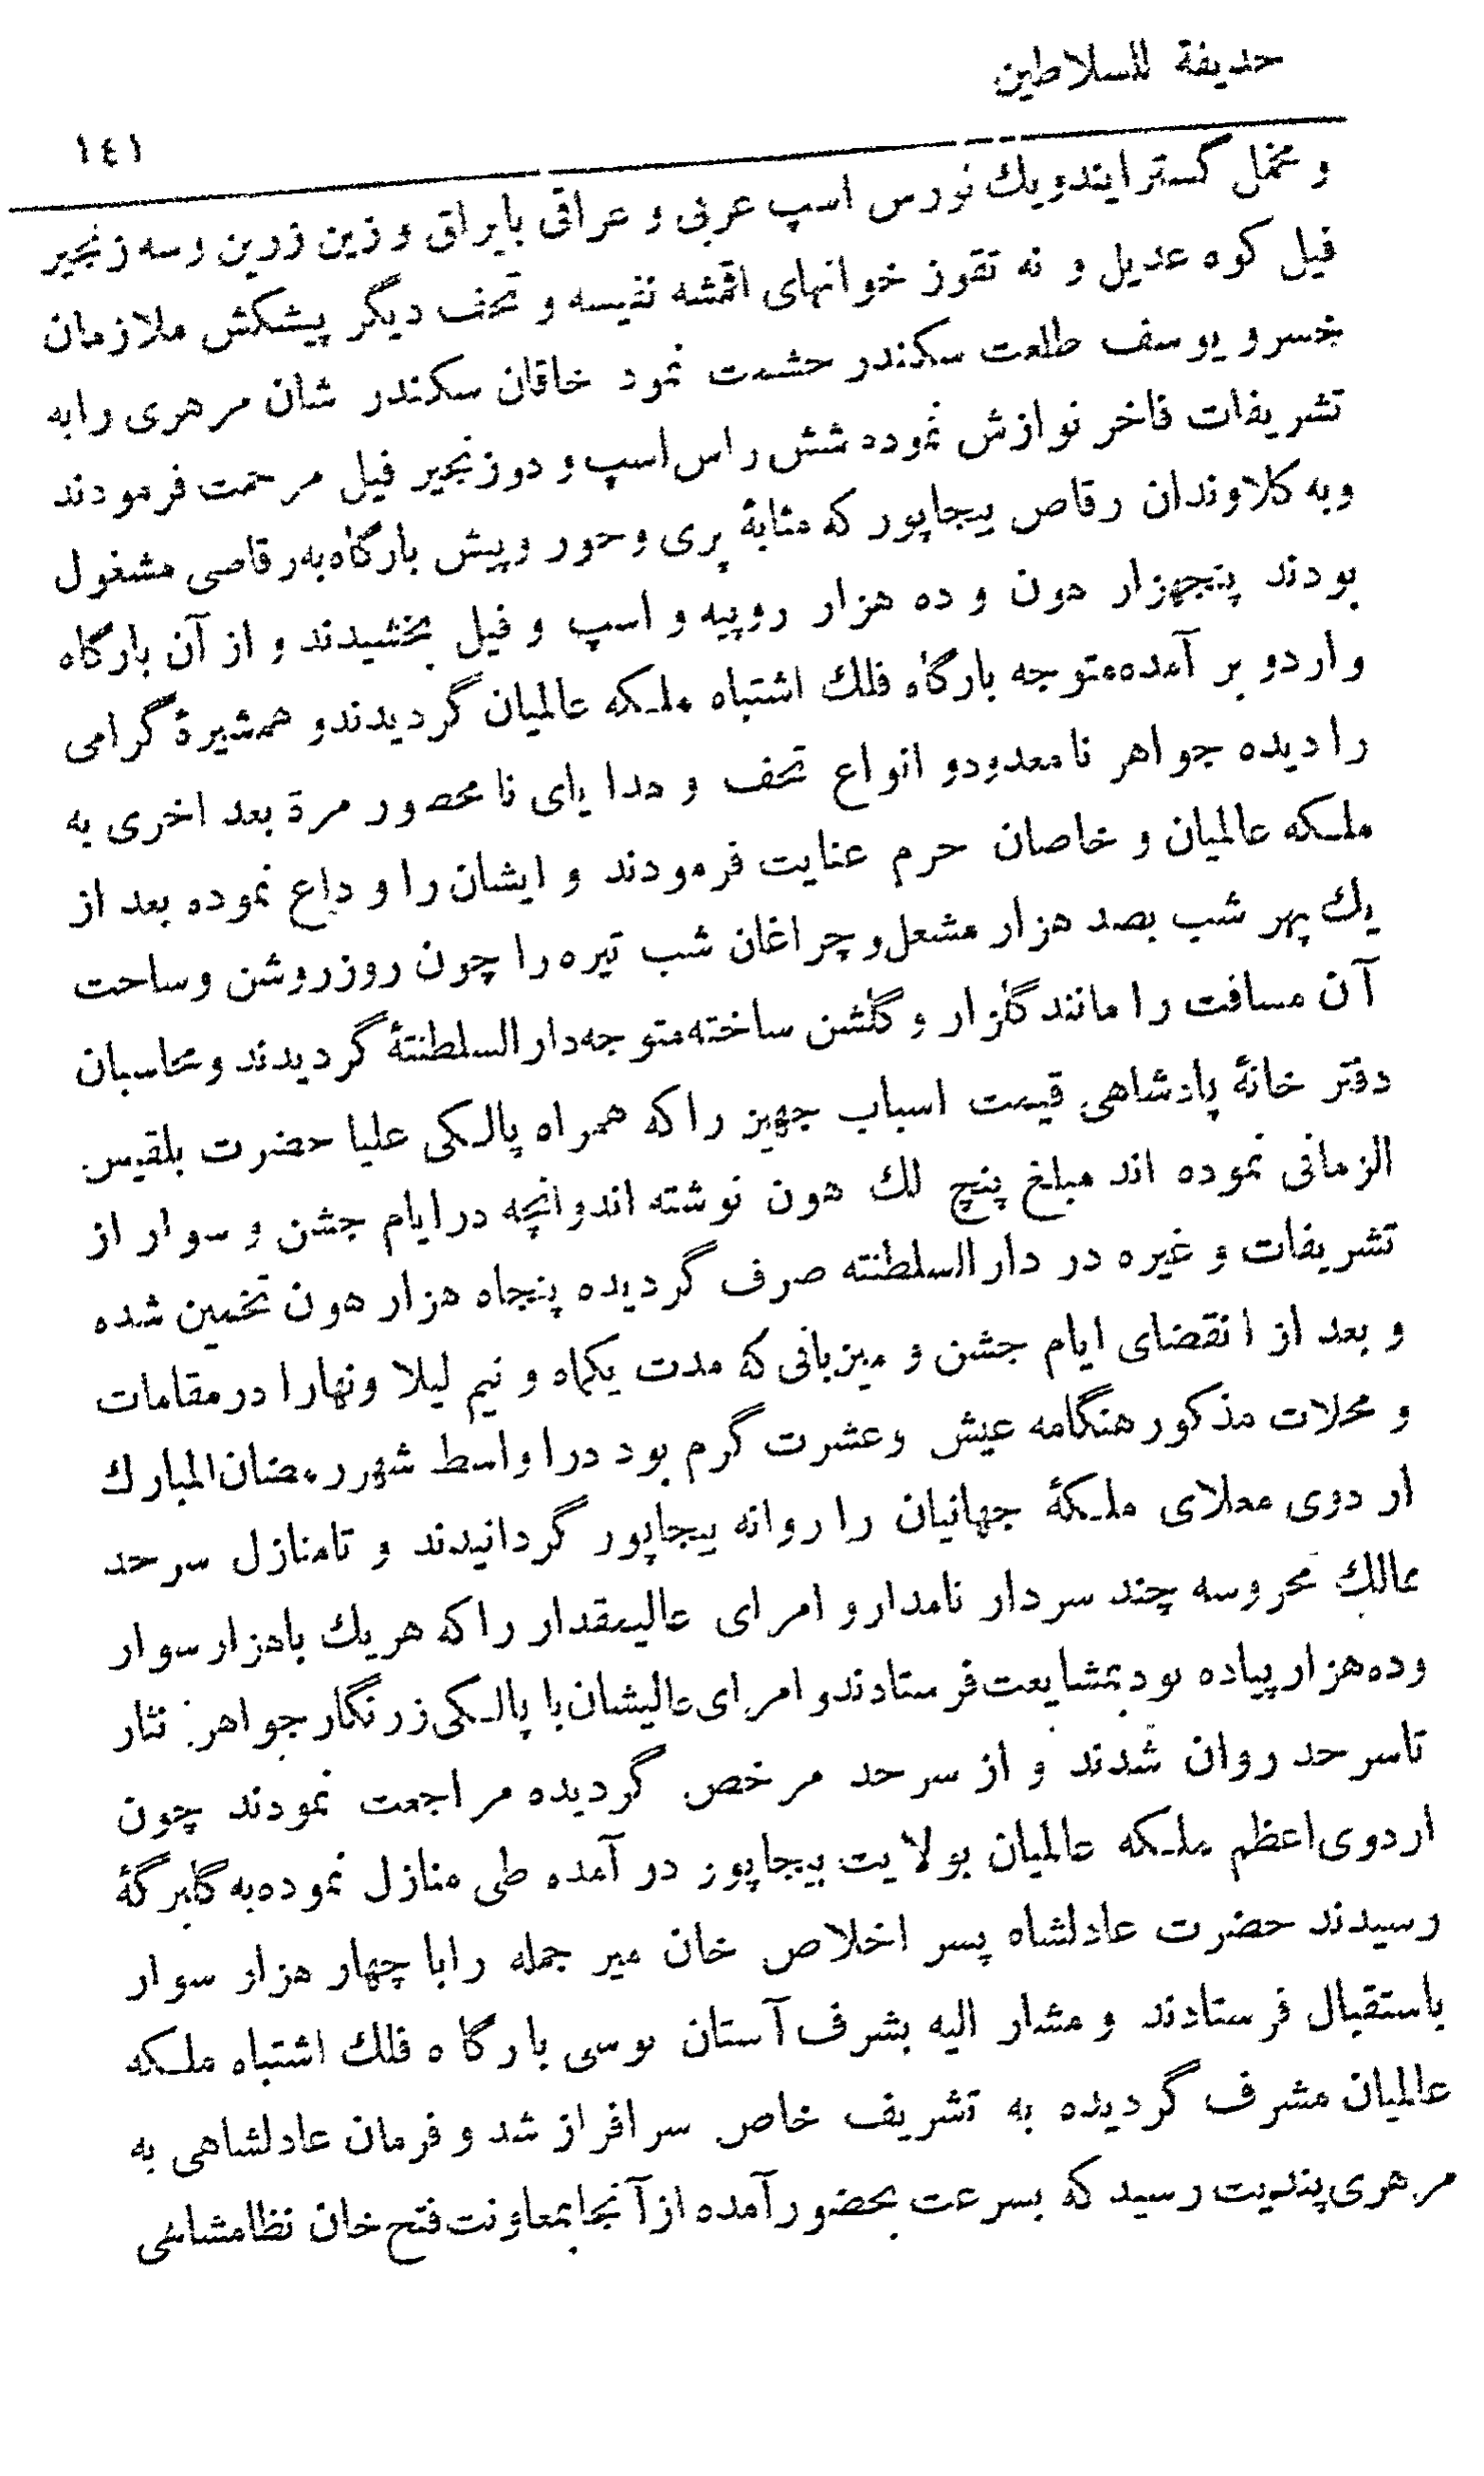 حديقة السلاطين
١٤١
و مخمل گسترایندویك نورس اسپ عربی و عراقی بایراق و زین زرین و سه زنجیر
فیل کوه عدیل و نه تقوز خوانهای اقمشه نفیسه و تحف دیگر پیشکش ملازمان
خسرو یوسف طلعت سکندر حشمت نمود خاقان سکندر شان مرهری رابه
تشریفات فاخر نوازش نموده شش راس اسپ و دو زنجیر فیل مرحمت فرمودند
وبه کلاوندان رقاص بیجاپور که مثابۀ پری و حور و پیش بارگاه به رقاصی مشغول
بودند پنجهزار هون و ده هزار روپیه و اسپ و فیل بخشیدند و از آن بارگاه
و اردو بر آمده متوجه بارگاه فلك اشتباه ملکه عالمیان گردیدندو همشیرۀ گرامی
را دیده جواهر نامعدودو انواع تحف و هدایای نا محصور مرة بعد اخری به
ملکه عالمیان و خاصان حرم عنایت فرمودند و ایشان را و داع نموده بعد از
یك پهر شب بصد هزار مشعل و چراغان شب تیره را چون روز روشن و ساحت
آن مسافت را مانند گلزار و گلشن ساخته متوجه دار السلطنتۀ گردیدند و محاسبان
دفتر خانۀ پادشاهی قیمت اسباب جهیز را که همراه پالکی علیا حضرت بلقیس
الزمانی نموده اند مبلغ پنچ لك هون نوشته اندوانچه درایام جشن و سوار از
تشریفات و غیره در دار السلطنته صرف گردیده پنجاه هزار هون تخمین شده
و بعد از انقضای ایام جشن و میزبانی که مدت یکماه و نیم لیلا ونهارا در مقامات
و محلات مذکور هنگامه عیش و عشرت گرم بود در اواسط شهر رمضان المبارك
اردوی معلای ملکۀ جهانیان را روانه بیجاپور گردانیدند و تامنازل سرحد
ممالك محروسه چند سردار نامدارو امرای عالیمقدار را که هریك باهزار سوار
وده هزار پیاده بود بمشایعت فرستادندو امرای عالیشان با پالکی زرنگار جواهر نثار
تاسرحد روان شدند و از سرحد مرخص گردیده مراجعت نمودند چون
اردوی اعظم ملکه عالمیان بولایت بیجاپور در آمده طی منازل نموده به گلبرگۀ
رسیدند حضرت عادلشاه پسر اخلاص خان میر جمله رابا چهار هزار سوار
باستقبال فرستادند و مشار الیه بشرف آستان بوسی بارگاه فلك اشتباه ملکه
عالمیان مشرف گردیده به تشریف خاص سرافراز شد و فرمان عادلشاهی به
مرهری پندیت رسید که بسرعت بحضور آمده از آنجا بمعاونت فتح خان نظامشاهی